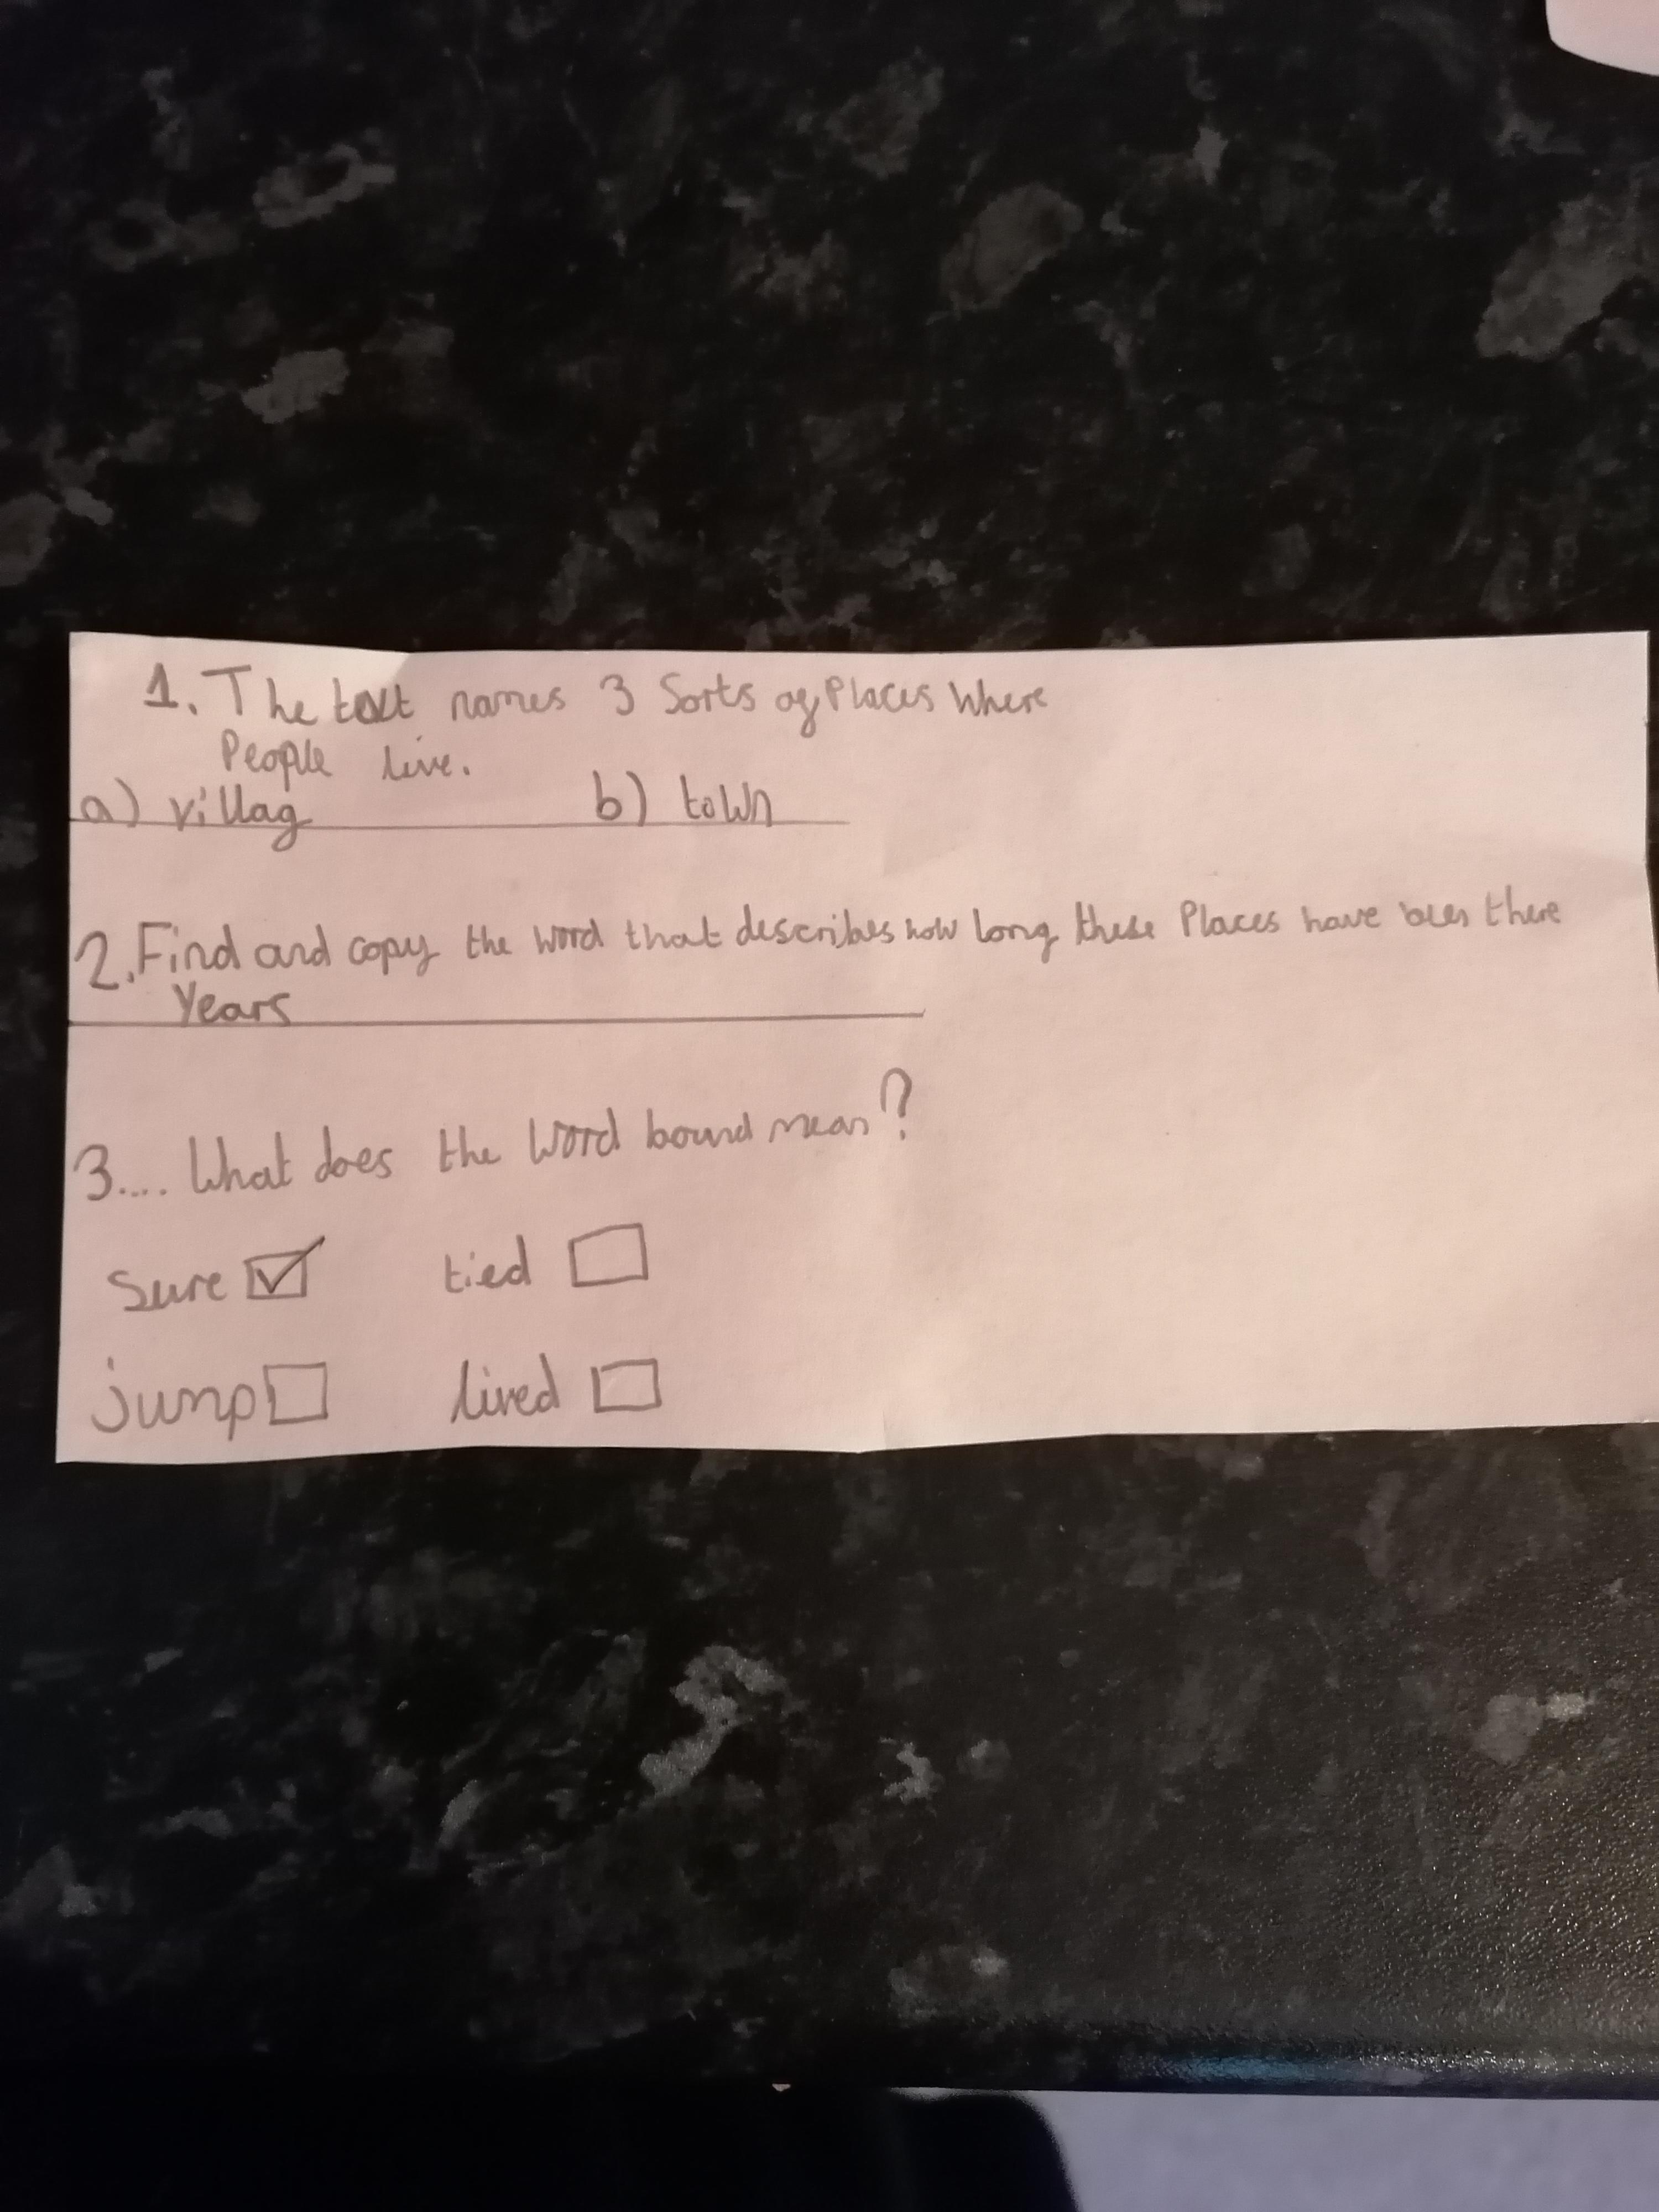 1. The text names 3 Sorts of Places Where
People live.
a) villag b) town
2. Find and copy the word that describes how long these Places have been there
Years
3.... What does the Word bound mean?
Sure ☑ tied ☐
jump ☐ lived ☐